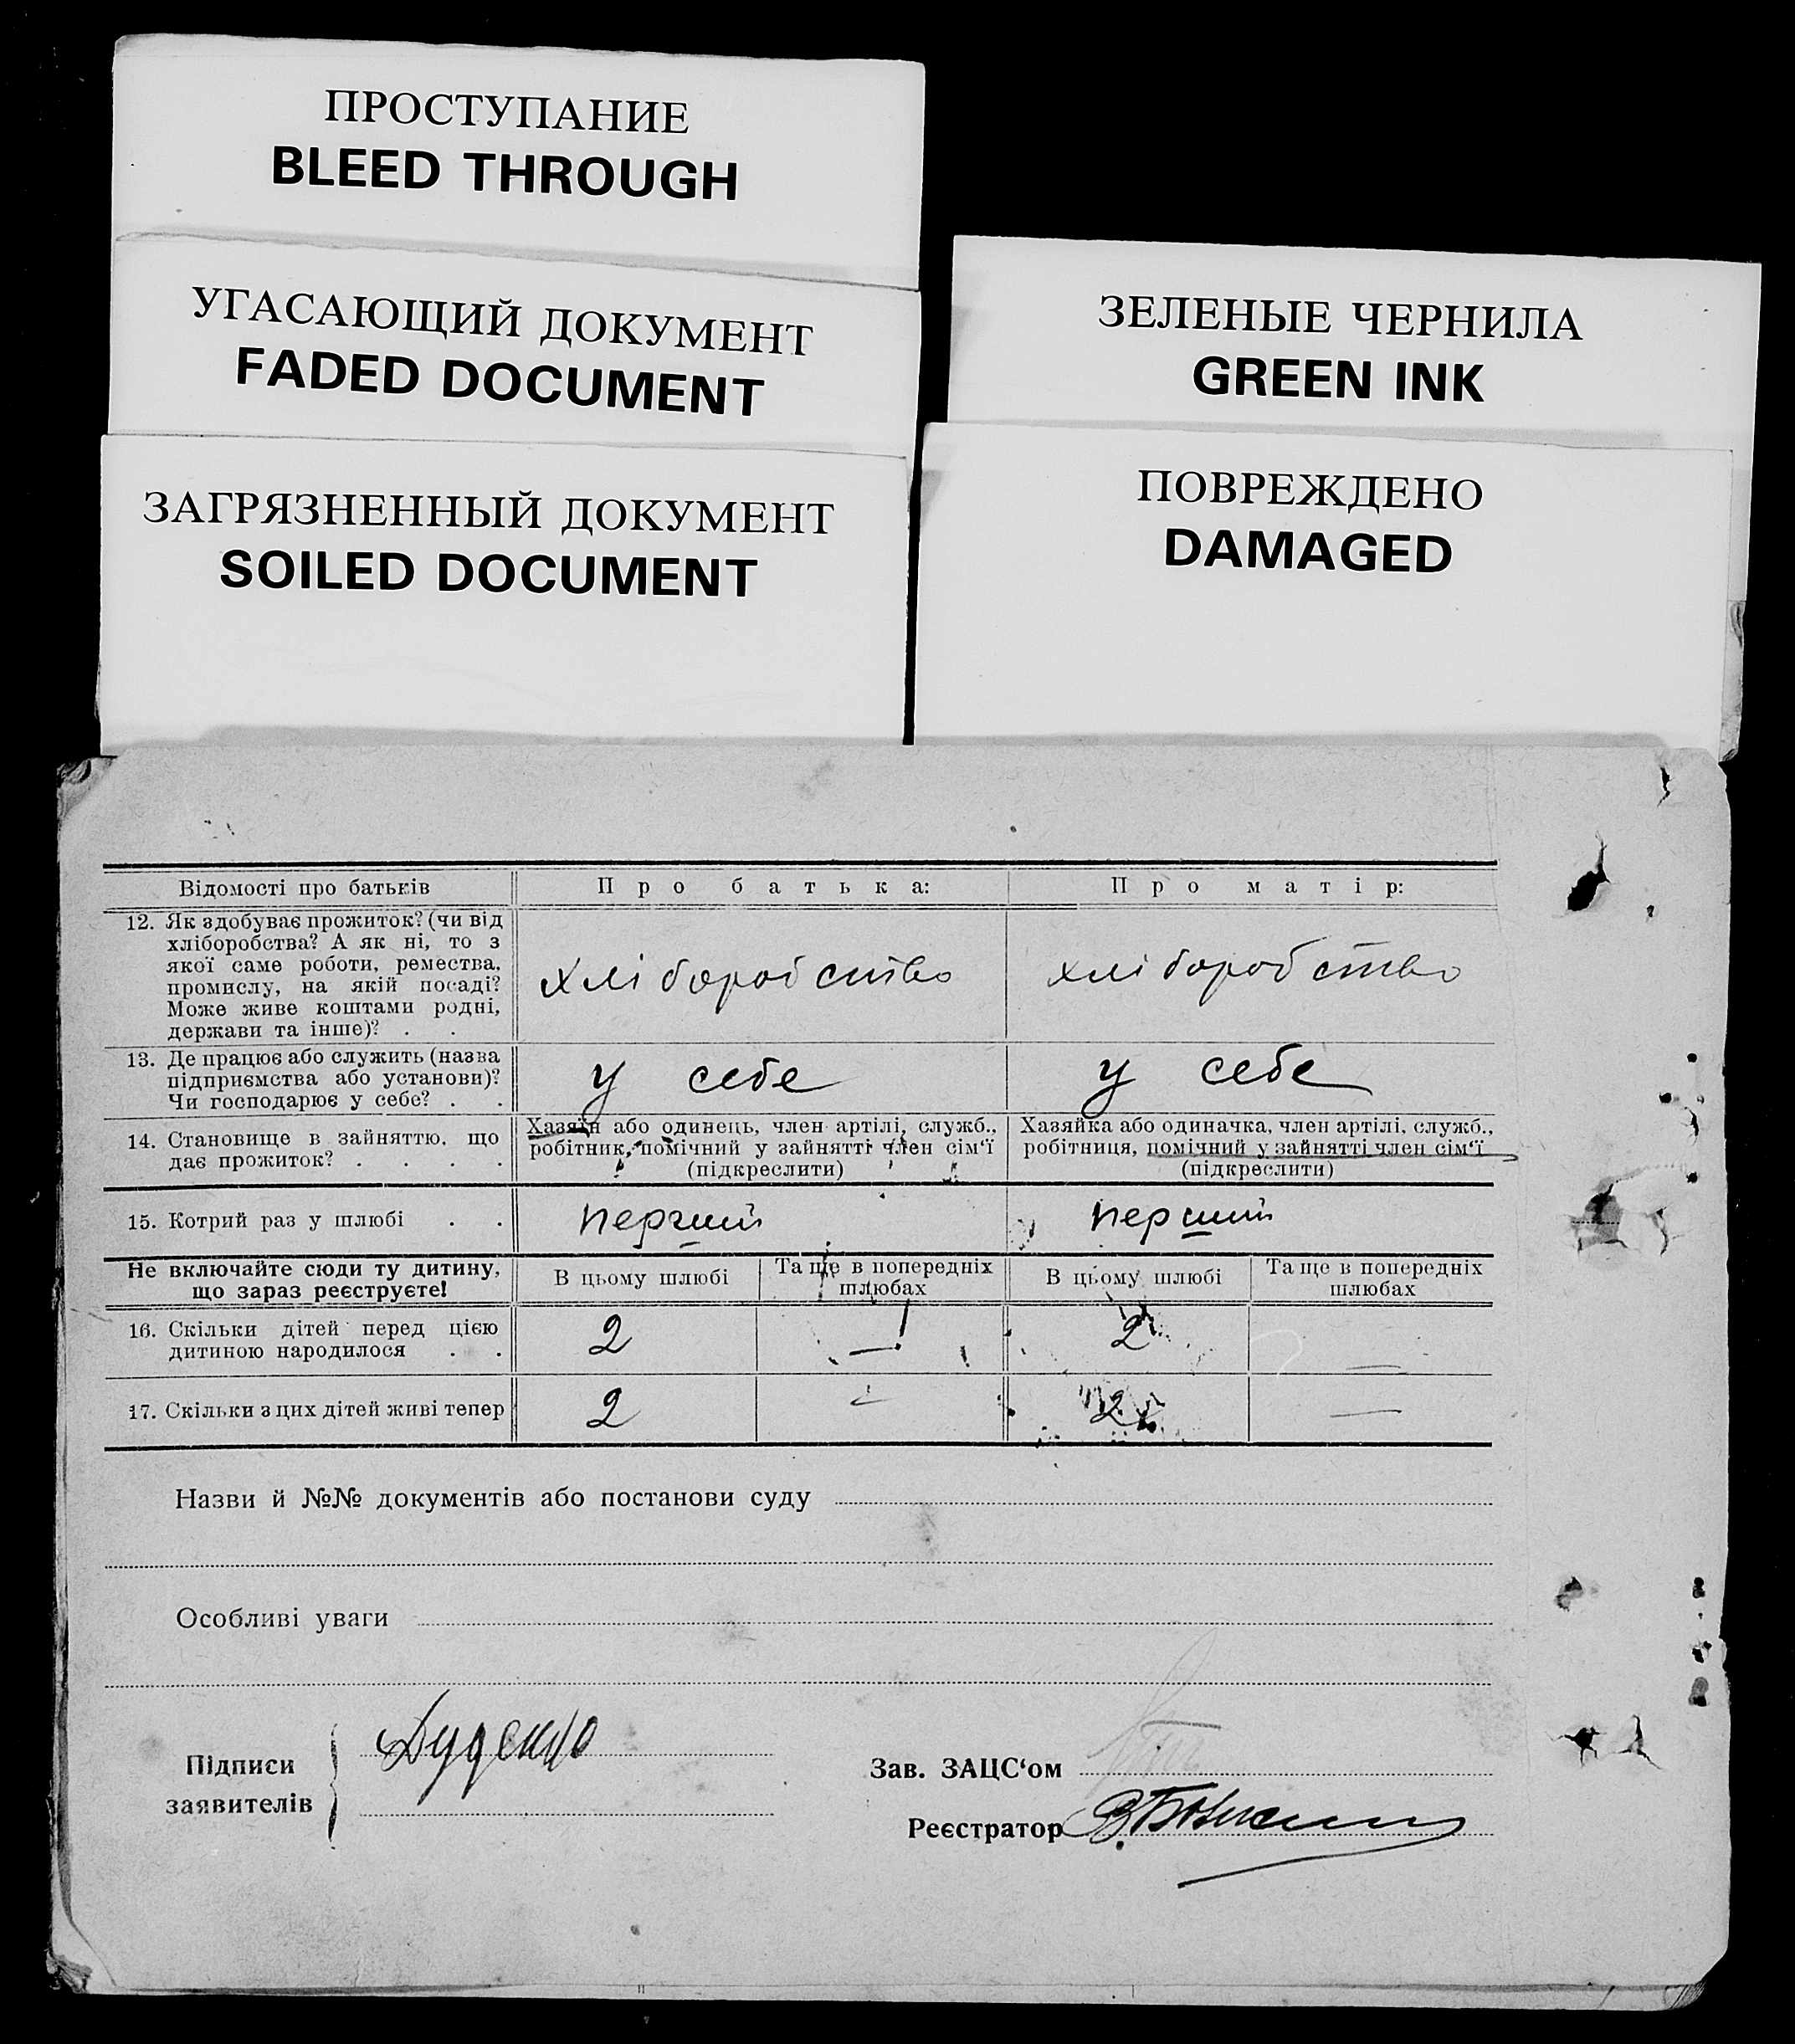 ПРОСТУПАНИЕ
BLEED THROUGH
УГАСАЮЩИЙ ДОКУМЕНТ
FADED DOCUMENT
ЗАГРЯЗНЕННЫЙ ДОКУМЕНТ
SOILED DOCUMENT
ЗЕЛЕНЫЕ ЧЕРНИЛА
GREEN INK
ПОВРЕЖДЕНО
DAMAGED
Відомості про батьків
Про батька:
Про матір:
12. Як здобуває прожиток? (чи від
хліборобства? А як ні, то з
якої саме роботи, ремества,
промислу, на якій посаді?
Може живе коштами родні,
держави та інше)? . .
хліборобство
хліборобство
13. Де працює або служить (назва
підприємства або установи)?
Чи господарює у себе? . .
у себе
у себе
14. Становище в зайняттю, що
дає прожиток? . . . .
Хазяїн або одинець, член артілі, служб.,
робітник, помічний у зайнятті член сім‘ї
(підкреслити)
Хазяйка або одиначка, член артілі, служб.,
робітниця, помічний у зайнятті член сім‘ї
(підкреслити)
15. Котрий раз у шлюбі . .
перший
перший
Не включайте сюди ту дитину,
що зараз реєструєте!
В цьому шлюбі
Та ще в попередніх
шлюбах
В цьому шлюбі
Та ще в попередніх
шлюбах
16. Скільки дітей перед цією
дитиною народилося . .
2
—
2
—
17. Скільки з цих дітей живі тепер
2
—
2
—
Назви й №№ документів або постанови суду
Особливі уваги
Підписи
заявителів
Дуденко
Зав. ЗАЦС‘ом
Реєстратор